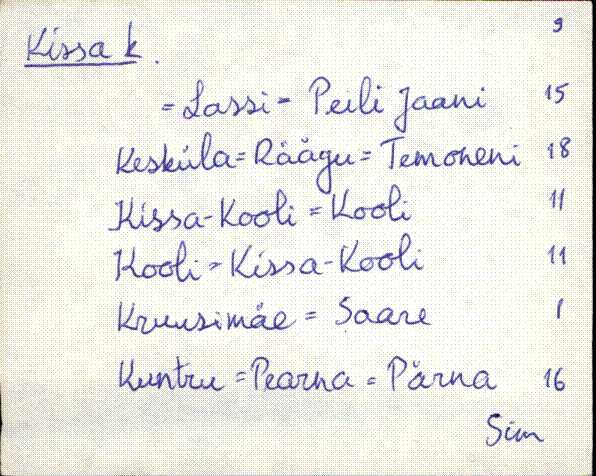 9
Kissa k.
= Lassi = Peili Jaani 15
Kesküla = Räägu = Temoneni 18
Kissa-Kooli = Kooli 11
Kooli = Kissa-Kooli 11
Kruusimäe = Saare 1
Kuntru = Pearna = Pärna 16
Sim